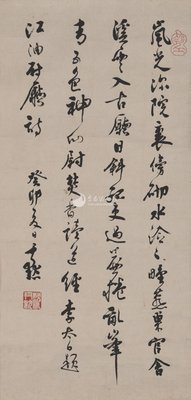 嵐光深院裏傍砌水泠々野燕巢官舍
溪雲入古廳日斜孤吏過簾捲亂峯
青五色神仙尉焚香讀道經李太白題
江油尉廳詩 癸卯夏日